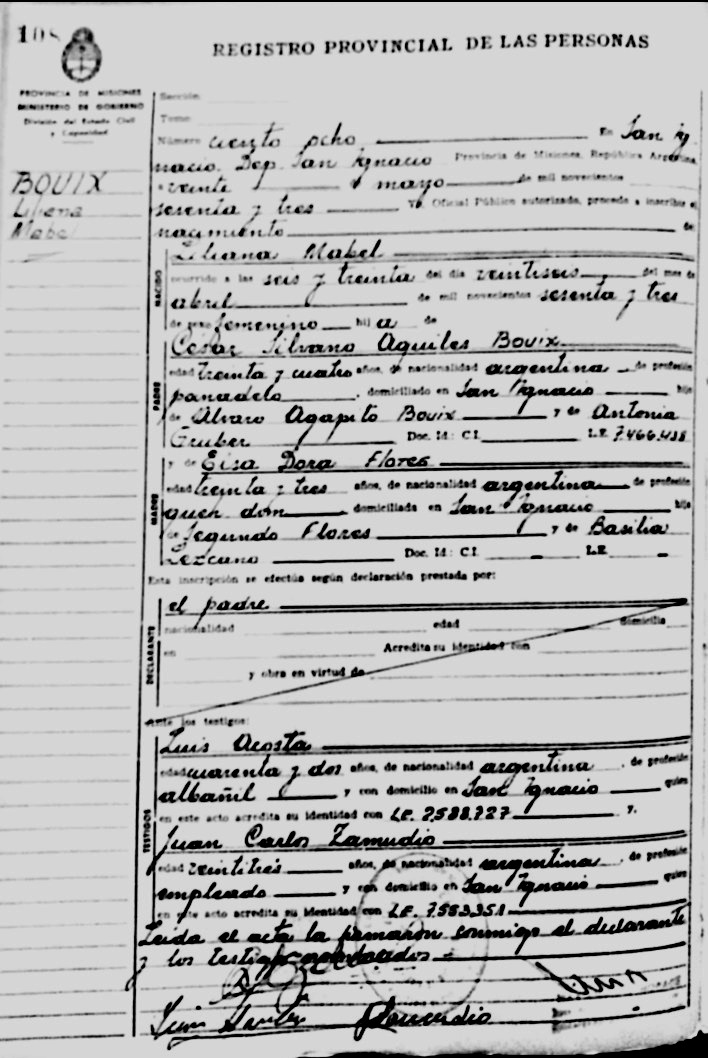 108
REGISTRO PROVINCIAL DE LAS PERSONAS
PROVINCIA DE MISIONES
MINISTERIO DE GOBIERNO
División del Estado Civil
y Capacidad
BOUIX
Liliana
Mabel
Sección
Tomo
Número ciento ocho En San Ig
nacio, Dep. San Ignacio Provincia de Misiones, República Argentina,
a veinte mayo de mil novecientos
sesenta y tres Yo, Oficial Público autorizado, procedo a inscribir el
nacimiento de
NACIDO
Liliana Mabel
ocurrido a las seis y treinta del día veintiseis del mes de
abril de mil novecientos sesenta y tres
de sexo femenino hija de
PADRE
César Silvano Aquiles Bouix
edad treinta y cuatro años, de nacionalidad argentina de profesión
panadero, domiciliado en San Ignacio hijo
de Alvaro Agapito Bouix y de Antonia
Gruber Doc. Id.: C.I. L.E. 7.466.438
MADRE
y de Elsa Dora Flores
edad treinta y tres años, de nacionalidad argentina de profesión
queh dom domiciliada en San Ignacio hija
de Segundo Flores y de Basilia
Lezcano Doc. Id.: C.I. - L.E. -
Esta inscripción se efectúa según declaración prestada por:
DECLARANTE
el padre
nacionalidad edad domicilio
en Acredita su identidad con
y obra en virtud de
Ante los testigos:
TESTIGOS
Luis Acosta
edad cuarenta y dos años, de nacionalidad argentina, de profesión
albañil y con domicilio en San Ignacio quien
en este acto acredita su identidad con L.E. 7.588.727 y,
Juan Carlos Zamudio
edad veintitrés años, de nacionalidad argentina, de profesión
empleado y con domicilio en San Ignacio quien
en este acto acredita su identidad con L.E. 7.563.351
Leida el acta la firmaron conmigo el declarante
y los testigos nombrados
Zamudio